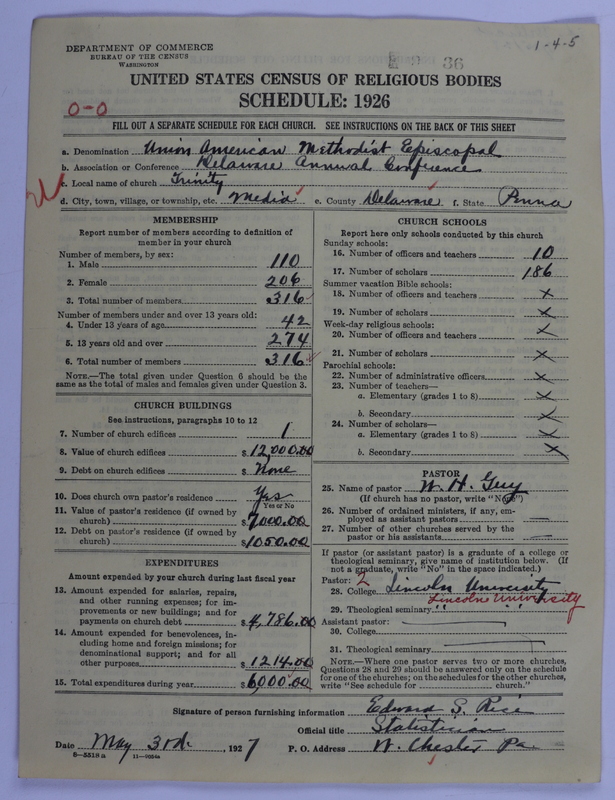 1-4-5
DEPARTMENT OF COMMERCE
BUREAU OF THE CENSUS
WASHINGTON
36
UNITED STATES CENSUS OF RELIGIOUS BODIES
SCHEDULE: 1926
0-0
FILL OUT A SEPARATE SCHEDULE FOR EACH CHURCH. SEE INSTRUCTIONS ON THE BACK OF THIS SHEET
a. Denomination Union American Methodist Episcopal
b. Association or Conference Delaware Annual Conference
c. Local name of church Trinity
d. City, town, village, or township, etc. Media e. County Delaware f. State Penna
MEMBERSHIP
Report number of members according to definition of
member in your church
Number of members, by sex:
1. Male 110
2. Female 206
3. Total number of members 316
Number of members under and over 13 years old:
4. Under 13 years of age 42
5. 13 years old and over 274
6. Total number of members 316
NOTE.—The total given under Question 6 should be the
same as the total of males and females given under Question 3.
CHURCH BUILDINGS
See instructions, paragraphs 10 to 12
7. Number of church edifices 1
8. Value of church edifices $12,000.00
9. Debt on church edifices $ None
10. Does church own pastor's residence Yes
Yes or No
11. Value of pastor's residence (if owned by
church) $7000.00
12. Debt on pastor's residence (if owned by
church) $1050.00
EXPENDITURES
Amount expended by your church during last fiscal year
13. Amount expended for salaries, repairs,
and other running expenses; for im-
provements or new buildings; and for
payments on church debt $4,786.00
14. Amount expended for benevolences, in-
cluding home and foreign missions; for
denominational support; and for all
other purposes $1214.00
15. Total expenditures during year $6000.00
CHURCH SCHOOLS
Report here only schools conducted by this church
Sunday schools:
16. Number of officers and teachers 10
17. Number of scholars 186
Summer vacation Bible schools:
18. Number of officers and teachers x
19. Number of scholars x
Week-day religious schools:
20. Number of officers and teachers x
21. Number of scholars x
Parochial schools:
22. Number of administrative officers x
23. Number of teachers—
a. Elementary (grades 1 to 8) x
b. Secondary x
24. Number of scholars—
a. Elementary (grades 1 to 8) x
b. Secondary x
PASTOR
25. Name of pastor W. H. Guy
(If church has no pastor, write "No")
26. Number of ordained ministers, if any, em-
ployed as assistant pastors —
27. Number of other churches served by the
pastor or his assistants —
If pastor (or assistant pastor) is a graduate of a college or
theological seminary, give name of institution below. (If
not a graduate, write "No" in the space indicated.)
Pastor: 2
28. College Lincoln University
29. Theological seminary " " Lincoln University
Assistant pastor:
30. College
31. Theological seminary
NOTE.—Where one pastor serves two or more churches,
Questions 28 and 29 should be answered only on the schedule
for one of the churches; on the schedules for the other churches,
write "See schedule for church."
Signature of person furnishing information Edward S. Rice
Official title Statistician
Date May 3rd, 1927 P. O. Address W. Chester Pa.
8—5518a 11—9034a